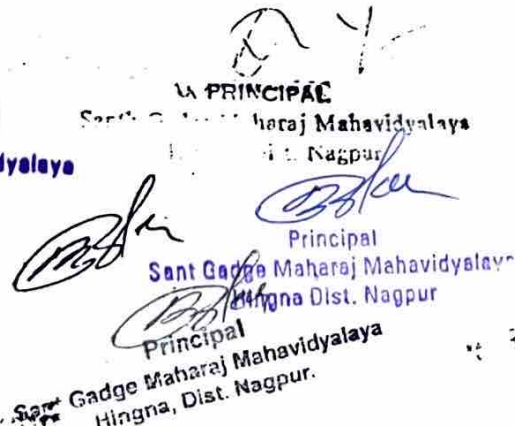 PRINCIPAL
haraj Mahavidyalaya
Nagpur
dyalaya
Principal
Sant Gadge Maharaj Mahavidyalaya
Hingna Dist. Nagpur
Principal
Sant Gadge Maharaj Mahavidyalaya
Hingna, Dist. Nagpur.